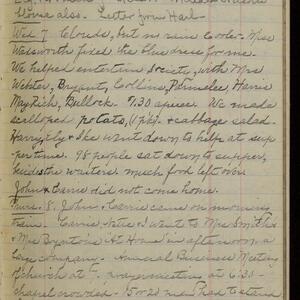 blouse also. Letter from Harl-
Wed 7 Clouds, but no rain Cooler. Mrs
Walsworth fixed the blue dress for me.
We helped entertain Society, with Mrs
Webster, Bryant, Collins, Parmelee, Harris
May Rich, Bullock. 7.30 apiece. We made
scalloped potats, (1 pk) & cabbage salad.
Harry, Ely & I went down to help at sup
per time. 98 people sat down to supper,
besides waiters. Much food left over
John & Carrie did not come home.
Thurs. 8. John & Carrie came on morning
train. Carrie, Nate & I went to Mrs Smith's
& Mrs Byntons At Home in afternoon a
large company. Annual Business Meeting
of church at 7, prayer meeting at 6:30
chapel crowded. 15 or 20 men had to stand